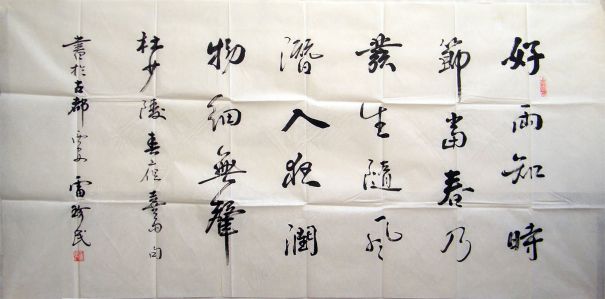 好雨知時
節當春乃
發生隨風
潛入夜潤
物細無聲
杜少陵春夜喜雨句
書於古都西安雷珍民